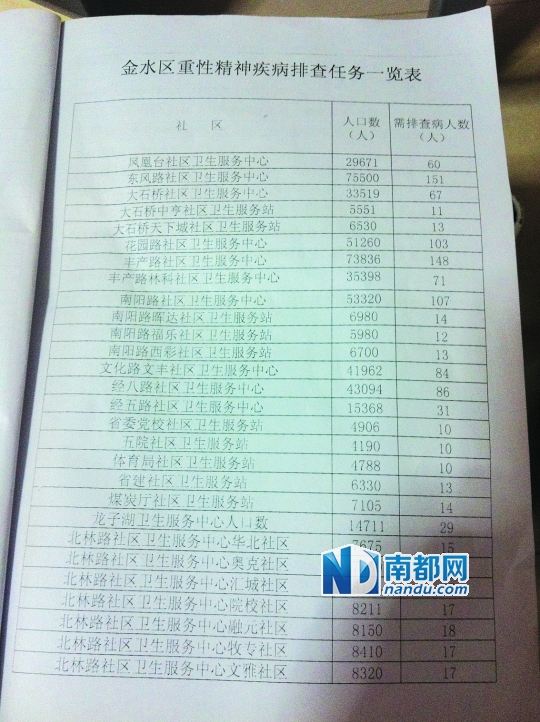 金水区重性精神疾病排查任务一览表
社 区 人口数（人） 需排查病人数（人）
凤凰台社区卫生服务中心 29671 60
东风路社区卫生服务中心 75500 151
大石桥社区卫生服务中心 33519 67
大石桥中亨社区卫生服务站 5551 11
大石桥天下城社区卫生服务站 6530 13
花园路社区卫生服务中心 51260 103
丰产路社区卫生服务中心 73836 148
丰产路林科社区卫生服务中心 35398 71
南阳路社区卫生服务中心 53320 107
南阳路晖达社区卫生服务站 6980 14
南阳路福乐社区卫生服务站 5980 12
南阳路西彩社区卫生服务站 6700 13
文化路文丰社区卫生服务中心 41962 84
经八路社区卫生服务中心 43094 86
经五路社区卫生服务中心 15368 31
省委党校社区卫生服务站 4906 10
五院社区卫生服务站 4190 10
体育局社区卫生服务站 4788 10
省建社区卫生服务站 6330 13
煤炭厅社区卫生服务站 7105 14
龙子湖卫生服务中心人口数 14711 29
北林路社区卫生服务中心华北社区 7675 15
北林路社区卫生服务中心奥克社区
北林路社区卫生服务中心汇城社区
北林路社区卫生服务中心院校社区 8211 17
北林路社区卫生服务中心融元社区 8150 18
北林路社区卫生服务中心牧专社区 8410 17
北林路社区卫生服务中心文雅社区 8320 17
ND 南都网
nandu.com